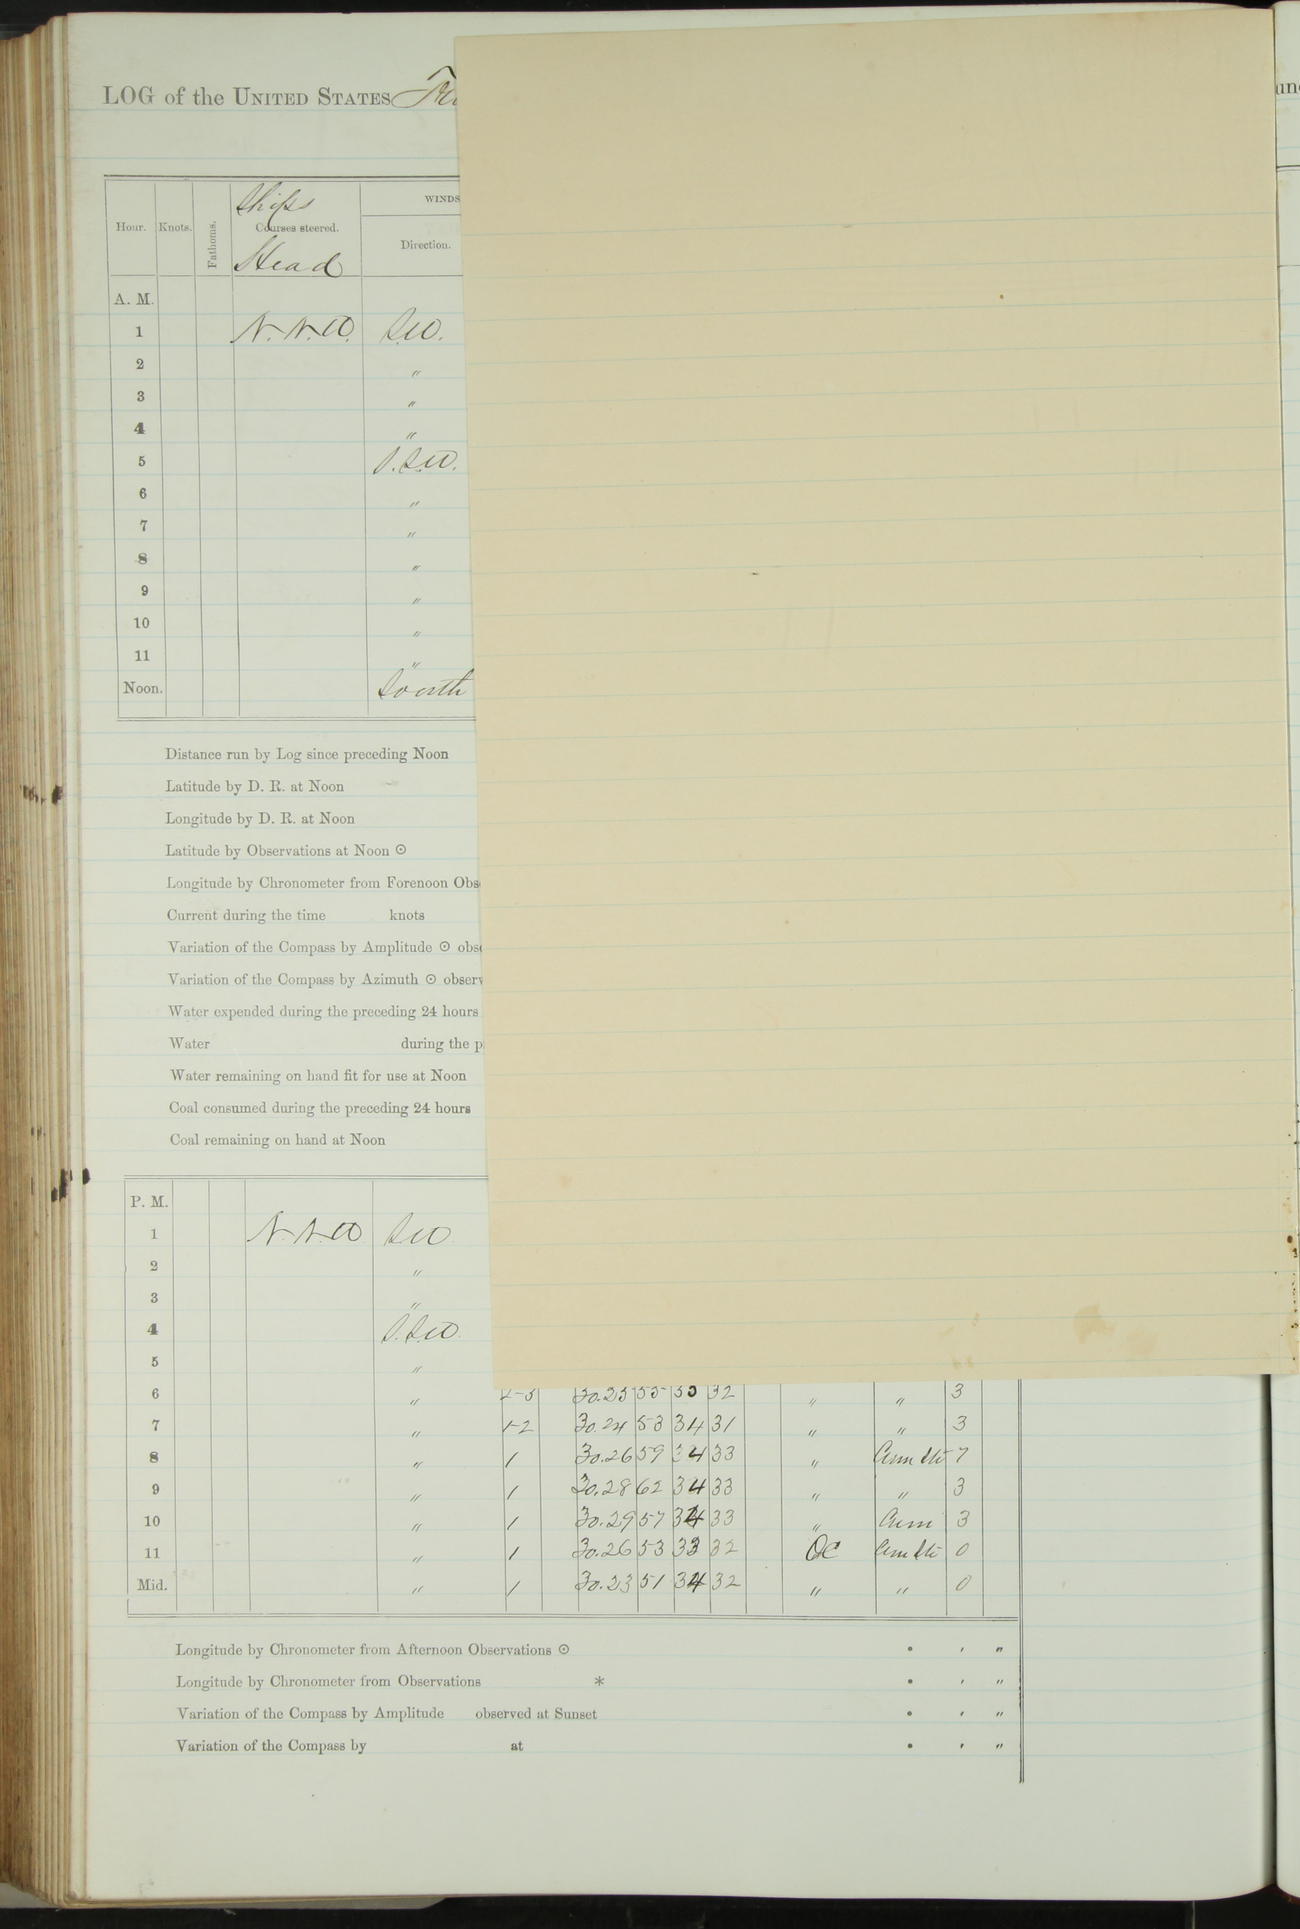 LOG of the UNITED STATES
Hour. Knots. Fathoms. Ships Courses steered. Head WINDS Direction.
A. M.
1 N.N.W. S.W.
2 "
3 "
4 "
5 S.S.W.
6 "
7 "
8 "
9 "
10 "
11 "
Noon. South
Distance run by Log since preceding Noon
Latitude by D. R. at Noon
Longitude by D. R. at Noon
Latitude by Observations at Noon ⊙
Longitude by Chronometer from Forenoon Obs
Current during the time knots
Variation of the Compass by Amplitude ⊙ obs
Variation of the Compass by Azimuth ⊙ observ
Water expended during the preceding 24 hours
Water during the p
Water remaining on hand fit for use at Noon
Coal consumed during the preceding 24 hours
Coal remaining on hand at Noon
P. M.
1 N.N.W S.W.
2 "
3 "
4 S.S.W.
5 "
6 " 2-3 30.25 55 35 32 " " 3
7 " 1-2 30.24 53 34 31 " " 3
8 " 1 30.26 59 34 33 " 7
9 " 1 30.28 62 34 33 " " 3
10 " 1 30.29 57 34 33 " 3
11 " 1 30.26 53 33 32 OC 0
Mid. " 1 30.23 51 34 32 " " 0
Longitude by Chronometer from Afternoon Observations ⊙ ° ′ ″
Longitude by Chronometer from Observations * ° ′ ″
Variation of the Compass by Amplitude observed at Sunset ° ′ ″
Variation of the Compass by at ° ′ ″